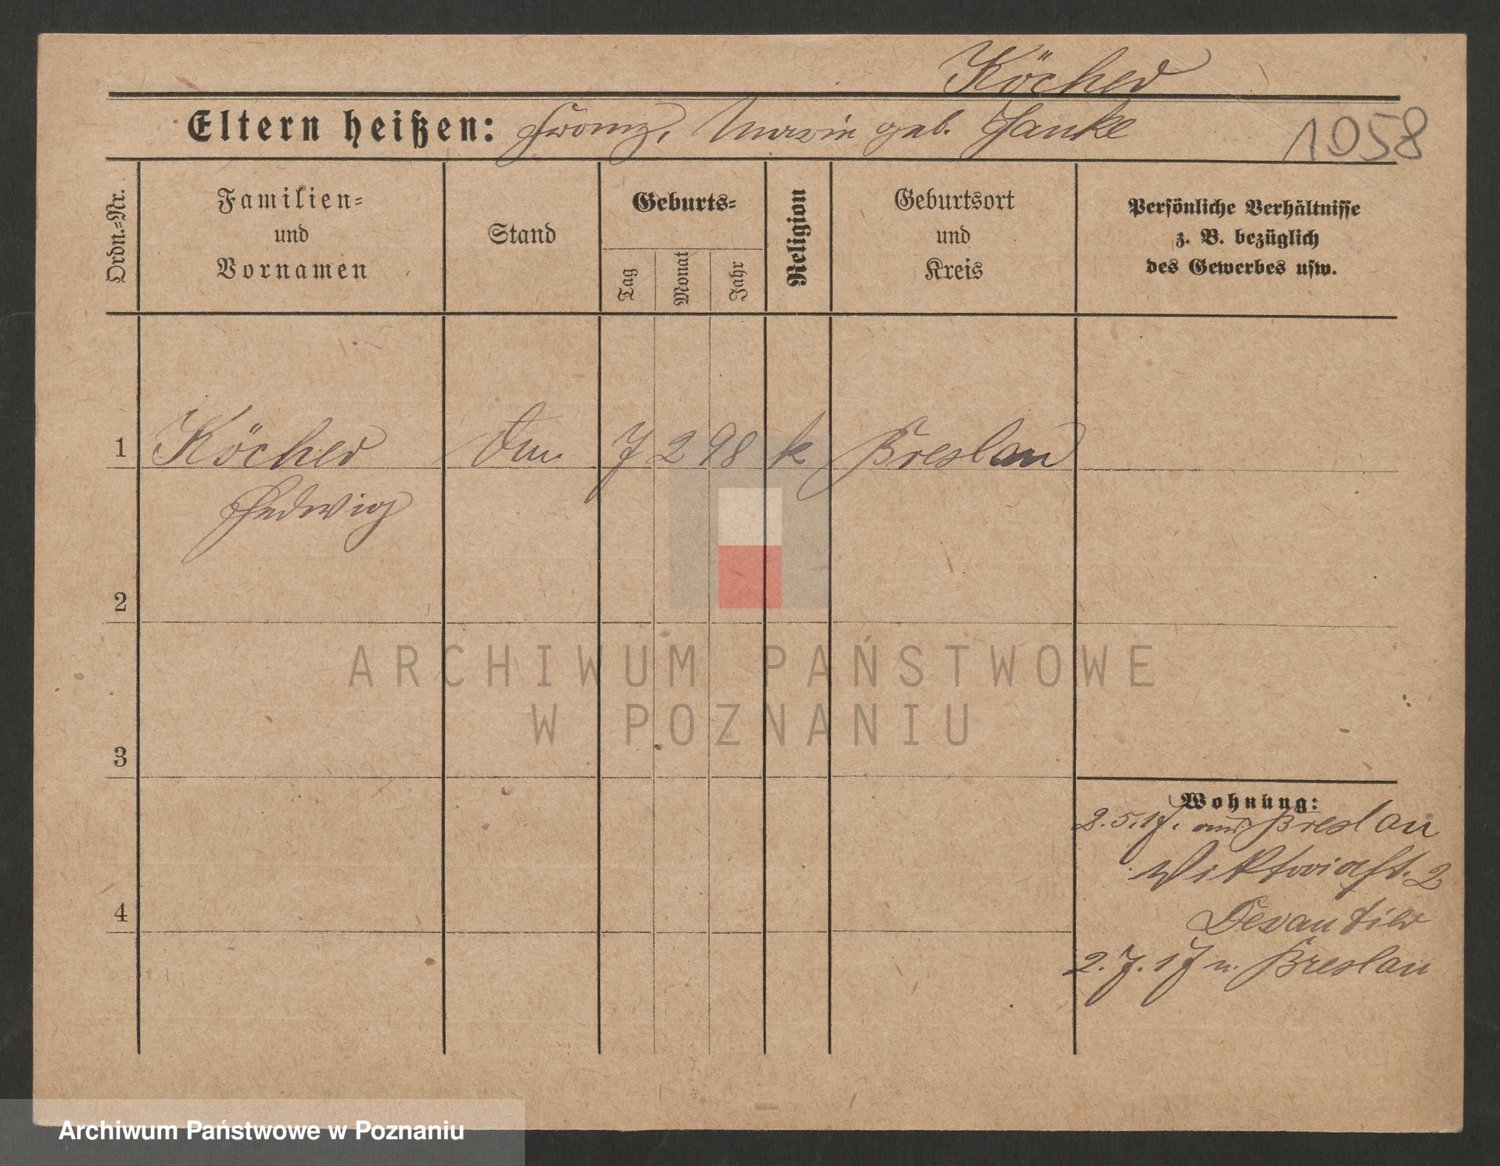 Köcher
Eltern heißen: Franz, Marie geb. Hanke
1058
Ordn.-Nr.
Familien-
und
Vornamen
Stand
Geburts-
Tag
Monat
Jahr
Religion
Geburtsort
und
Kreis
Persönliche Verhältnisse
z. B. bezüglich
des Gewerbes usw.
1 Köcher 7 2 98 k Breslau
Hedwig
2
3
4
Wohnung:
2.5.17. aus Breslau
Viktoriast. 2
Devantier
2.7.17 n. Breslau
ARCHIWUM PAŃSTWOWE
W POZNANIU
Archiwum Państwowe w Poznaniu